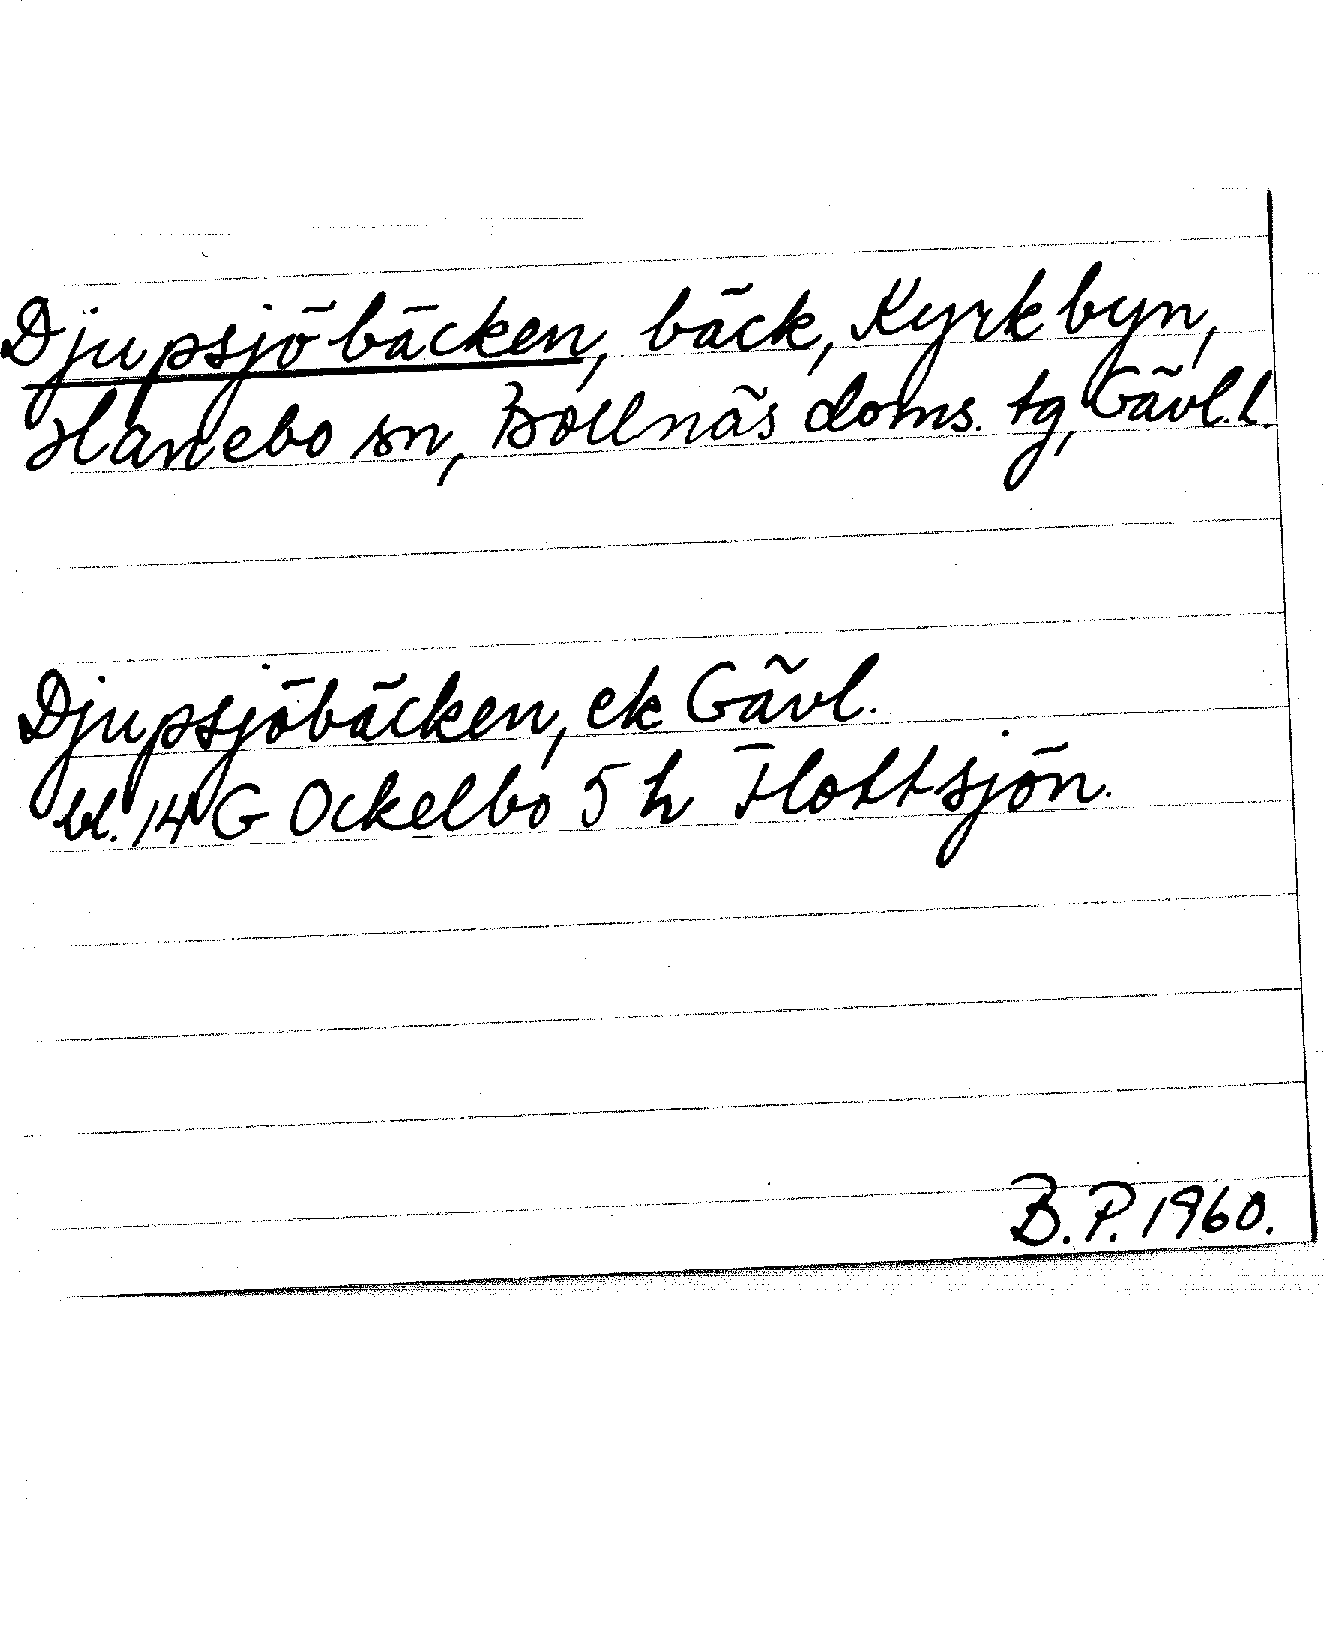 Djupsjöbäcken, bäck, Kyrkbyn,
Hanebo sn, Bollnäs doms. tg, Gävl.l.
Djupsjöbäcken, ek Gävl.
bl. 14 G Ockelbo 5 h Flottsjön.
B.P. 1960.